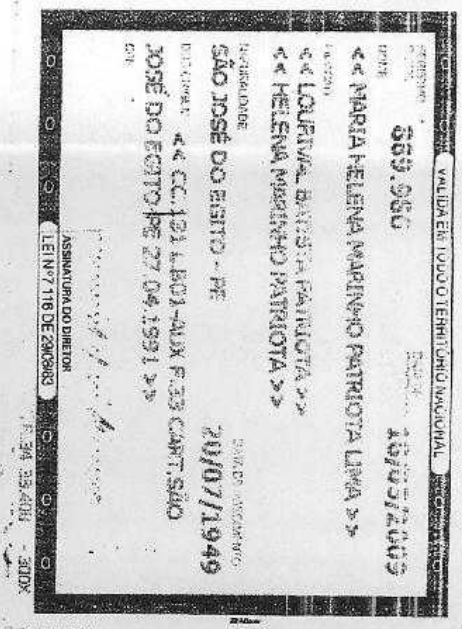 VALIDA EM TODO O TERRITÓRIO NACIONAL
889.960
NOME
<< MARIA HELENA MARINHO PATRIOTA LIMA >>
<< LOURIVAL BATISTA PATRIOTA >>
<< HELENA MARINHO PATRIOTA >>
NATURALIDADE
SÃO JOSÉ DO EGITO - PE
20/07/1949
<< CC.131 L.B01-AUX F.33 CART.SÃO
JOSÉ DO EGITO-PE 27.04.1991 >>
ASSINATURA DO DIRETOR
LEI Nº 7.116 DE 29/08/83